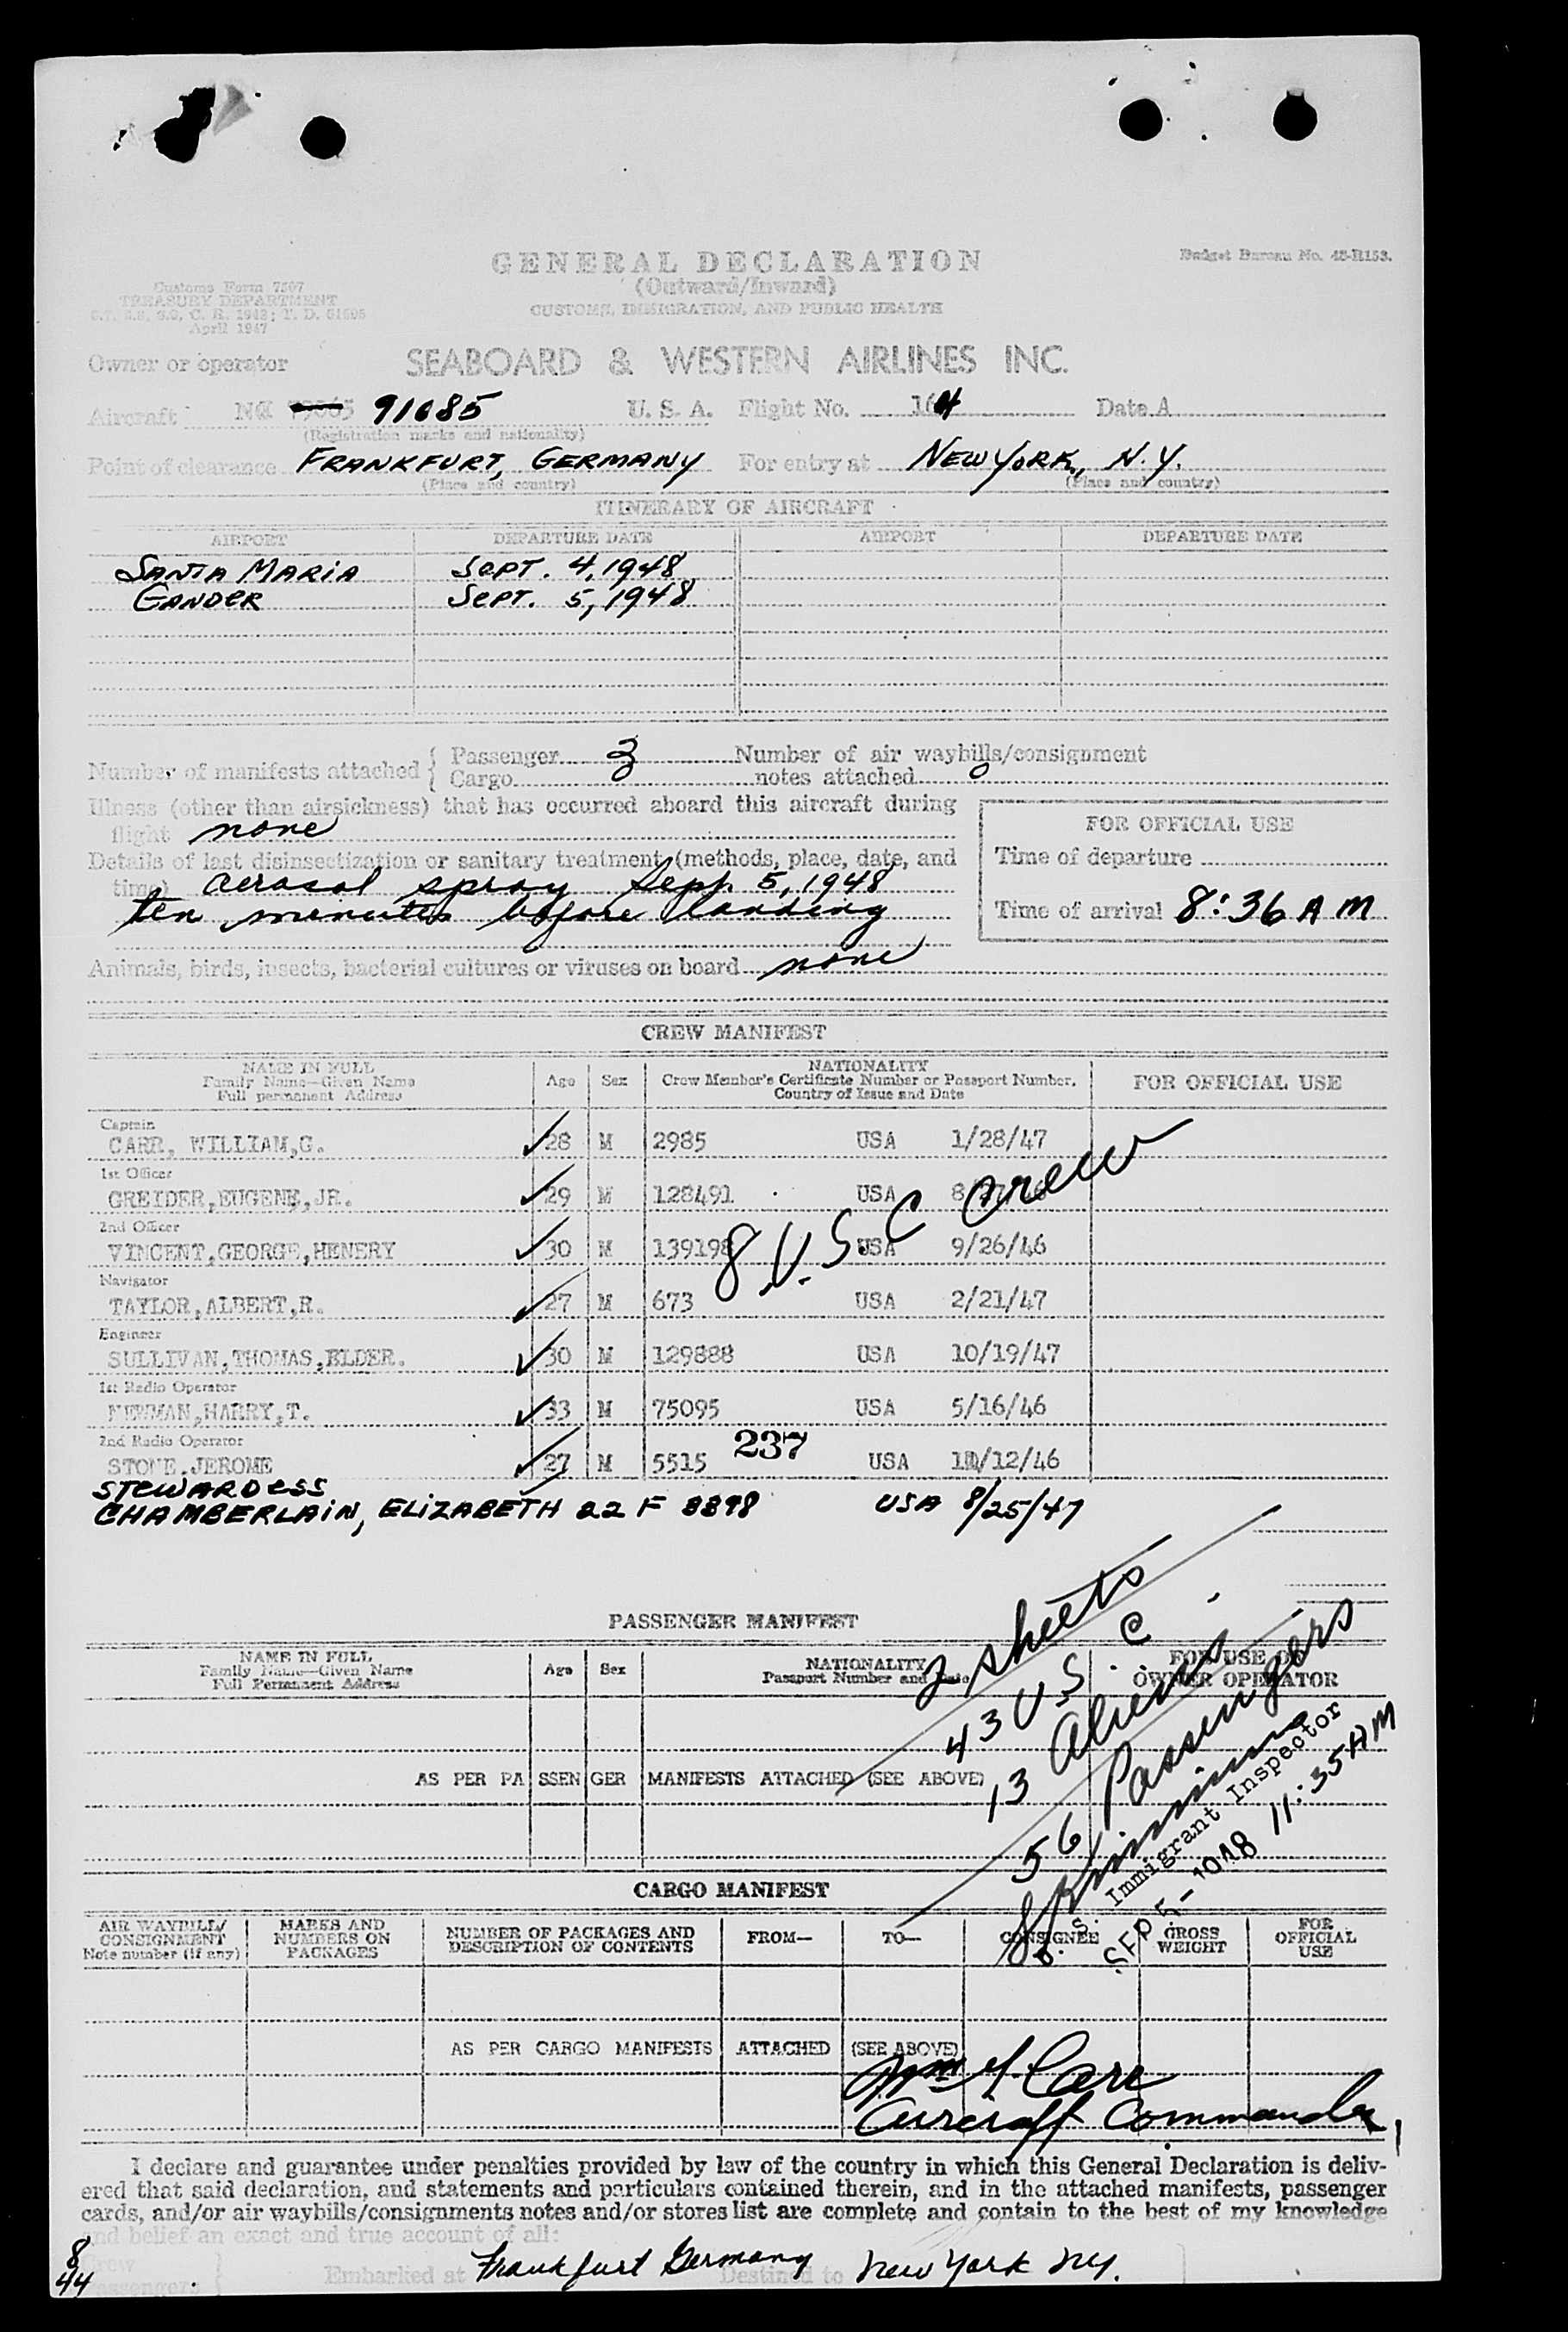 GENERAL DECLARATION
Budget Bureau No. 48-R153.
(Outward/Inward)
Customs Form 7507
TREASURY DEPARTMENT
April 1947
CUSTOMS, IMMIGRATION, AND PUBLIC HEALTH
Owner or operator SEABOARD & WESTERN AIRLINES INC.
Aircraft 91085 U. S. A. Flight No. 164 Date A
(Registration marks and nationality)
Point of clearance FRANKFURT, GERMANY For entry at NEW YORK, N.Y.
(Place and country) (Place and country)
ITINERARY OF AIRCRAFT
AIRPORT DEPARTURE DATE AIRPORT DEPARTURE DATE
SANTA MARIA SEPT. 4, 1948
GANDER SEPT. 5, 1948
Number of manifests attached { Passenger 3 Number of air waybills/consignment
Cargo notes attached 0
Illness (other than airsickness) that has occurred aboard this aircraft during
flight none
FOR OFFICIAL USE
Details of last disinsectization or sanitary treatment (methods, place, date, and
Time of departure
time) aerosol spray Sept. 5, 1948
ten minutes before landing
Time of arrival 8:36 AM
Animals, birds, insects, bacterial cultures or viruses on board none
CREW MANIFEST
NAME IN FULL
Family Name—Given Name
Full permanent Address
Age Sex
NATIONALITY
Crew Member's Certificate Number or Passport Number,
Country of Issue and Date
FOR OFFICIAL USE
Captain
CARR, WILLIAM,G. 28 M 2985 USA 1/28/47
1st Officer
GREIDER,EUGENE,JR. 29 M 128491 USA
2nd Officer
VINCENT,GEORGE,HENERY 30 M 139198 USA 9/26/46
8 U.S.C crew
Navigator
TAYLOR,ALBERT,R. 27 M 673 USA 2/21/47
Engineer
SULLIVAN,THOMAS,ELDER. 30 M 129888 USA 10/19/47
1st Radio Operator
NEWMAN,HARRY,T. 33 M 75095 USA 5/16/46
2nd Radio Operator 237
STONE,JEROME 27 M 5515 USA 11/12/46
STEWARDESS
CHAMBERLAIN, ELIZABETH 22 F 8898 USA 8/25/47
2 sheets
PASSENGER MANIFEST
NAME IN FULL
Family Name—Given Name
Full Permanent Address
Age Sex
NATIONALITY
Passport Number and Date
FOR USE OF
OWNER OPERATOR
43 U.S.C.
13 Aliens
56 Passengers
AS PER PASSENGER MANIFESTS ATTACHED (SEE ABOVE)
U. S. Immigrant Inspector
SEP 5 - 1948 11:35 AM
CARGO MANIFEST
AIR WAYBILL/
CONSIGNMENT
Note number (if any)
MARKS AND
NUMBERS ON
PACKAGES
NUMBER OF PACKAGES AND
DESCRIPTION OF CONTENTS
FROM— TO— CONSIGNEE
GROSS
WEIGHT
FOR
OFFICIAL
USE
AS PER CARGO MANIFESTS ATTACHED (SEE ABOVE)
Wm G. Carr
Aircraft Commander
I declare and guarantee under penalties provided by law of the country in which this General Declaration is deliv-
ered that said declaration, and statements and particulars contained therein, and in the attached manifests, passenger
cards, and/or air waybills/consignments notes and/or stores list are complete and contain to the best of my knowledge
and belief an exact and true account of all:
8 Crew
44 Passengers } Embarked at Frankfurt Germany Destined to New York NY.